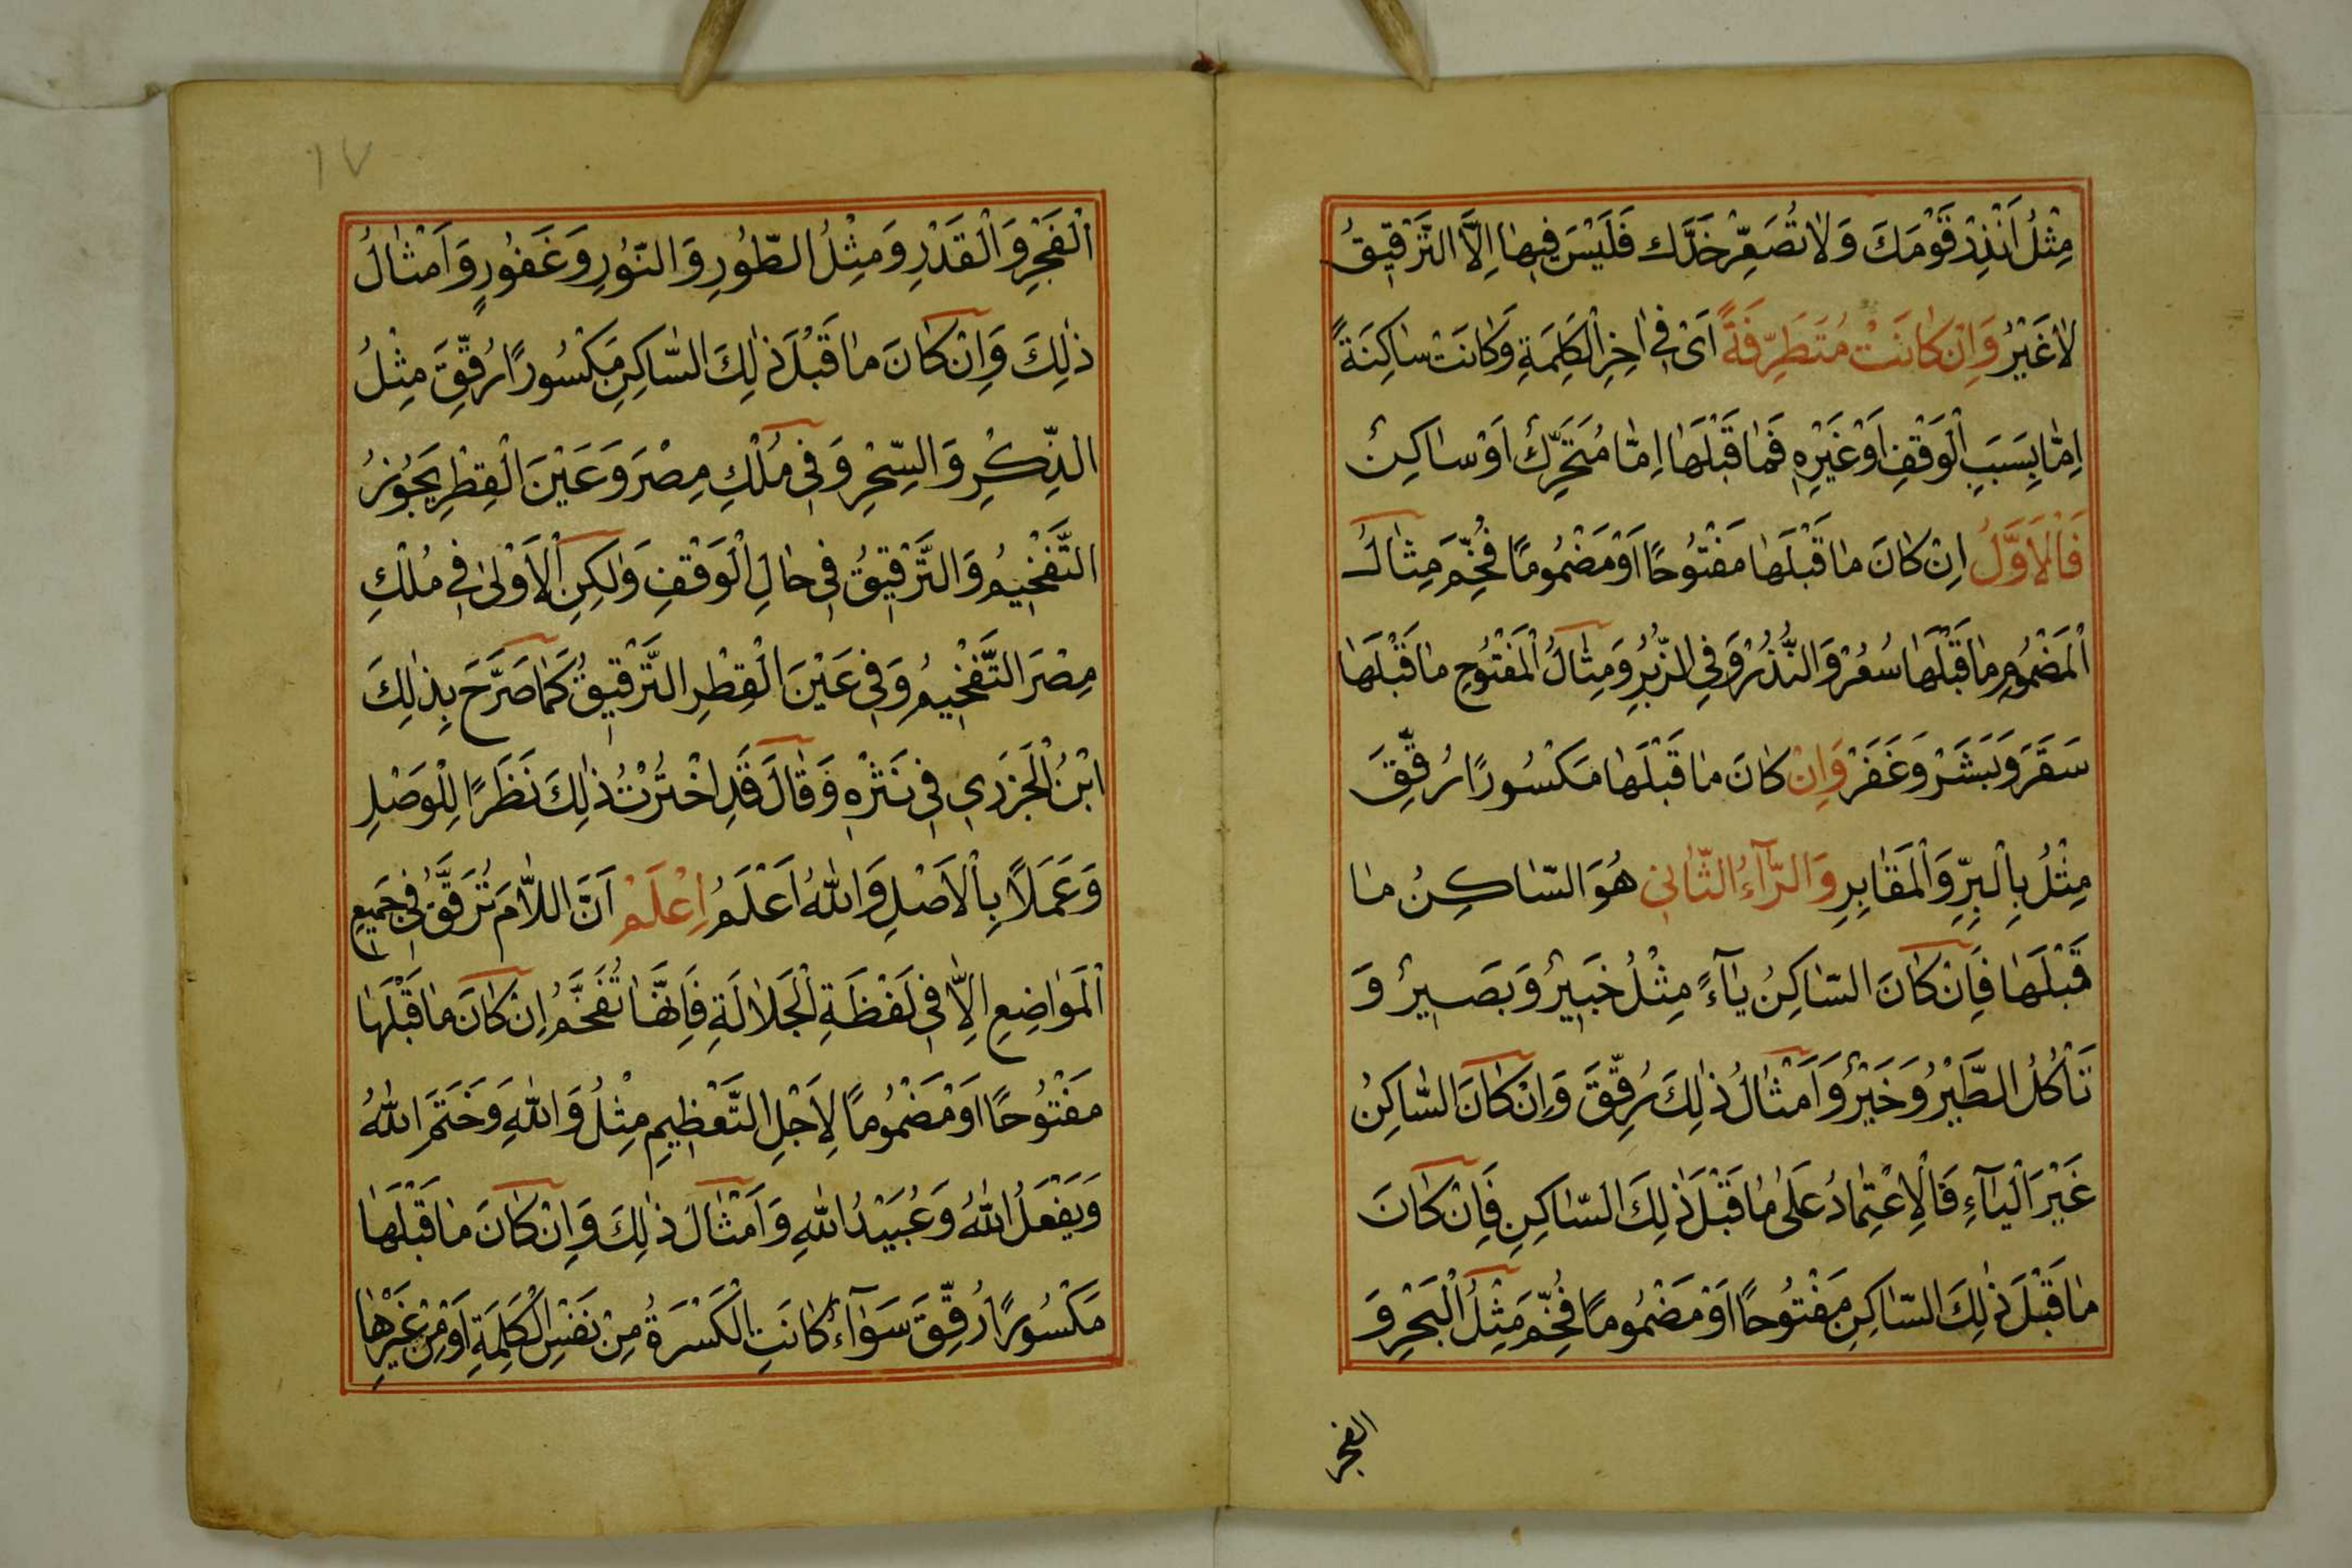 مِثْلُ اَنْذِرْ قَوْمَكَ وَلَا تُصَعِّرْ خَدَّكَ فَلَيْسَ فِيهَا اِلَّا التَّرْقِيقُ
لَا غَيْرُ وَاِنْ كَانَتْ مُتَطَرِّفَةً اَىْ فِى اٰخِرِ الْكَلِمَةِ وَكَانَتْ سَاكِنَةً
اِمَّا بِسَبَبِ الْوَقْفِ اَوْ غَيْرِهِ فَمَا قَبْلَهَا اِمَّا مُتَحَرِّكٌ اَوْ سَاكِنٌ
فَالْاَوَّلُ اِنْ كَانَ مَا قَبْلَهَا مَفْتُوحًا اَوْ مَضْمُومًا فُخِّمَ مِثَالُ
الْمَضْمُومِ مَا قَبْلَهَا سُعُرْ وَالنُّذُرْ وَفِى الزُّبُرِ وَمِثَالُ الْمَفْتُوحِ مَا قَبْلَهَا
سَقَرَ وَبَشَرْ وَغَفَرْ وَاِنْ كَانَ مَا قَبْلَهَا مَكْسُورًا رُقِّقَ
مِثْلُ بِالْبِرِّ وَالْمَقَابِرِ وَالرَّآءُ الثَّانِى هُوَ السَّاكِنُ مَا
قَبْلَهَا فَاِنْ كَانَ السَّاكِنُ يَآءً مِثْلُ خَبِيرٌ وَبَصِيرٌ وَ
تَأْكُلُ الطَّيْرُ وَخَيْرٌ وَاَمْثَالُ ذٰلِكَ رُقِّقَ وَاِنْ كَانَ السَّاكِنُ
غَيْرَ الْيَآءِ فَالْاِعْتِمَادُ عَلٰى مَا قَبْلَ ذٰلِكَ السَّاكِنِ فَاِنْ كَانَ
مَا قَبْلَ ذٰلِكَ السَّاكِنِ مَفْتُوحًا اَوْ مَضْمُومًا فُخِّمَ مِثْلُ الْبَحْرِ وَ
الفجر
١٧
الْفَجْرِ وَالْقَدْرِ وَمِثْلُ الطُّورِ وَالنُّورِ وَغَفُورٍ وَاَمْثَالُ
ذٰلِكَ وَاِنْ كَانَ مَا قَبْلَ ذٰلِكَ السَّاكِنِ مَكْسُورًا رُقِّقَ مِثْلُ
الذِّكْرِ وَالسِّحْرِ وَفِى مُلْكِ مِصْرَ وَعَيْنَ الْقِطْرِ يَجُوزُ
التَّفْخِيمُ وَالتَّرْقِيقُ فِى حَالِ الْوَقْفِ وَلٰكِنِ الْاَوْلٰى فِى مُلْكِ
مِصْرَ التَّفْخِيمُ وَفِى عَيْنَ الْقِطْرِ التَّرْقِيقُ كَمَا صَرَّحَ بِذٰلِكَ
ابْنُ الْجَزَرِي فِى نَشْرِهِ وَقَالَ قَدِ اخْتَرْتُ ذٰلِكَ نَظَرًا لِلْوَصْلِ
وَعَمَلًا بِالْاَصْلِ وَاللّٰهُ اَعْلَمُ اِعْلَمْ اَنَّ اللَّامَ تُرَقَّقُ فِى جَمِيعِ
الْمَوَاضِعِ اِلَّا فِى لَفْظَةِ الْجَلَالَةِ فَاِنَّهَا تُفَخَّمُ اِنْ كَانَ مَا قَبْلَهَا
مَفْتُوحًا اَوْ مَضْمُومًا لِاَجْلِ التَّعْظِيمِ مِثْلُ وَاللّٰهِ وَخَتَمَ اللّٰهُ
وَيَفْعَلُ اللّٰهُ وَعُبَيْدُ اللّٰهِ وَاَمْثَالَ ذٰلِكَ وَاِنْ كَانَ مَا قَبْلَهَا
مَكْسُورًا رُقِّقَ سَوَآءٌ كَانَتِ الْكَسْرَةُ مِنْ نَفْسِ الْكَلِمَةِ اَوْ مِنْ غَيْرِهَا